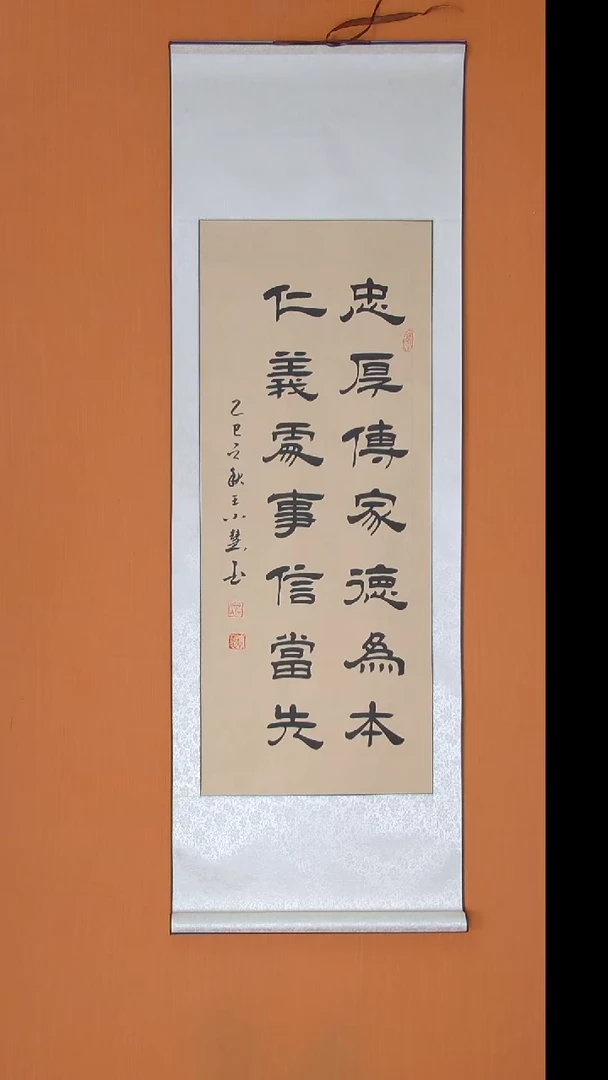 忠厚傳家德為本
仁義處事信當先
乙巳之秋王小慧書